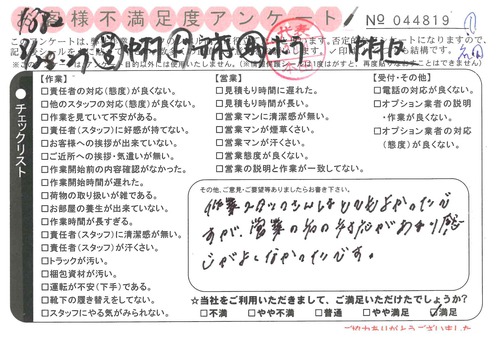 お客様不満足度アンケート
No 044819
チェックリスト
【作業】
□責任者の対応(態度)が良くない。
□他のスタッフの対応(態度)が良くない。
□作業を見ていて不安がある。
□責任者(スタッフ)に好感が持てない。
□お客様への挨拶が出来ていない。
□ご近所への挨拶・気遣いが無い。
□作業開始前の内容確認がなかった。
□作業開始時間が遅れた。
□荷物の取り扱いが雑である。
□お部屋の養生が出来ていない。
□作業時間が長すぎる。
□責任者(スタッフ)に清潔感が無い。
□責任者(スタッフ)が汗くさい。
□トラックが汚い。
□梱包資材が汚い。
□運転が不安(下手)である。
□靴下の履き替えをしてない。
□スタッフにやる気がみられない。
【営業】
□見積もり時間に遅れた。
□見積もり時間が長い。
□営業マンに清潔感が無い。
□営業マンが煙草くさい。
□営業マンが汗くさい。
□営業態度が良くない。
□営業の説明と作業が一致してない。
【受付・その他】
□電話の対応が良くない。
□オプション業者の説明
・作業が良くない。
□オプション業者の対応
(態度)が良くない。
その他、ご意見・ご要望等ありましたらお書き下さい。
作業スタッフのさんはとてもよかったで
すが、営業の方の対応があまり感
じがよくなかったです。
☆当社をご利用いただきまして、ご満足いただけたでしょうか?
□不満 □やや不満 □普通 □やや満足 ☑満足
ご協力ありがとうございました